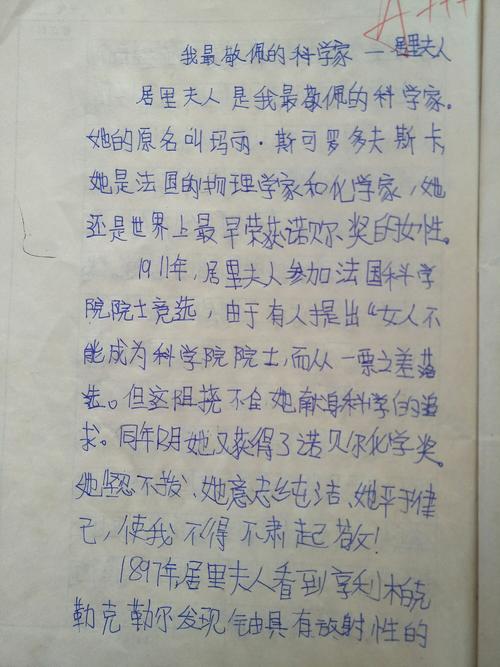 A+++
我最敬佩的科学家—居里夫人
居里夫人是我最敬佩的科学家。
她的原名叫玛丽·斯可罗多夫斯卡,
她是法国的物理学家和化学家,她
还是世界上最早荣获诺贝尔奖的女性。
1911年,居里夫人参加法国科学
院院士竞选,由于有人提出“女人不
能成为科学院院士,而从一票之差落
选。但这阻挠不了她献身科学的追
求。同年12月她又获得了诺贝尔化学奖。
她坚忍不拔、她意志纯洁、她严于律
己,使我不得不肃起敬!
1897年,居里夫人看到亨利柏克
勒克勒尔发现铀具有放射性的